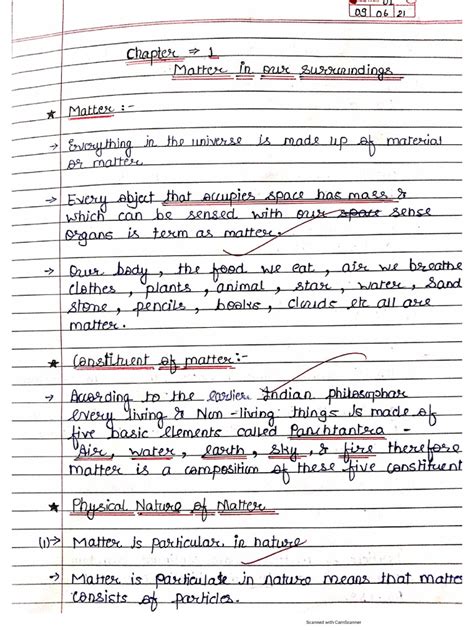 01
09 06 21
Chapter ⇒ 1
Matter in our surroundings
★ Matter :-
→ Everything in the universe is made up of material
or matter
→ Every object that occupies space has mass &
which can be sensed with our space sense
organs is term as matter.
→ Our body , the food we eat , air we breathe
clothes , plants , animal , star , water , sand
stone , pencils , books , clouds etc all are
matter .
★ Constituent of matter :-
→ According to the earlier Indian philosophar
every living & Non - living things is made of
five basic elements called Panchtantra -
Air , water , earth , sky , & fire therefore
matter is a composition of these five constituent
★ Physical Nature of Matter
(1)→ Matter is particular in nature
→ Matter is particulate in nature means that matter
consists of particles.
Scanned with CamScanner